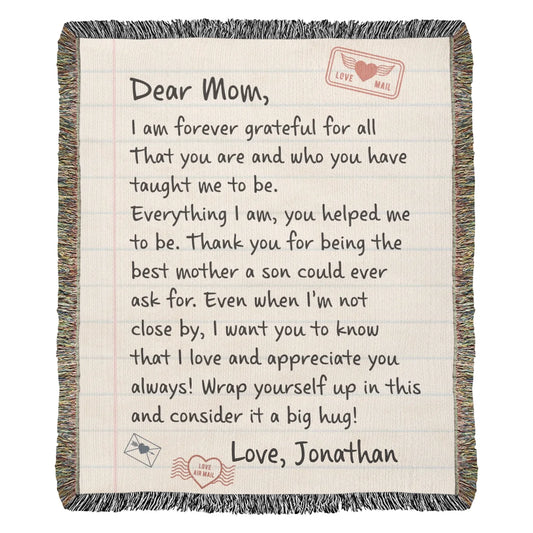 LOVE MAIL
Dear Mom,
I am forever grateful for all
That you are and who you have
taught me to be.
Everything I am, you helped me
to be. Thank you for being the
best mother a son could ever
ask for. Even when I'm not
close by, I want you to know
that I love and appreciate you
always! Wrap yourself up in this
and consider it a big hug!
Love, Jonathan
LOVE
AIR MAIL